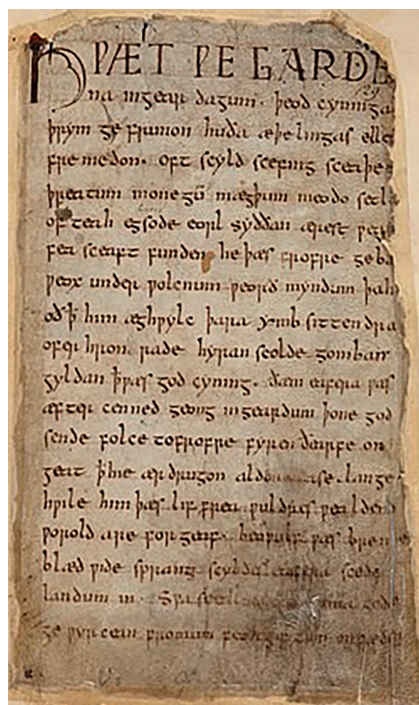 HǷÆT ǷE GARDE
na ingear dagum. þeod cyninga
þrym ge frunon huða æþelingas elle
fremedon. oft scyld scefing sceaþe
þreatum monegū mægþum meodo setl
of teah egsode eorl syððan ærest ƿear
fea sceaft funden he þæs frofre geba
ƿeox under ƿolcnum ƿeorð myndum þah
oð ꝥ him æghƿylc þara ymb sittendra
ofer hron rade hyran scolde gomban
gyldan ꝥ ƿæs god cyning. ðam eafera ƿæs
æfter cenned geong in geardum þone god
sende folce tofrofre fyren ðearfe on
geat ꝥ hie ær drugon lange
hƿile him þæs lif frea ƿuldres ƿealdend
ƿorold are for geaf. beoƿulf ƿæs breme
blæd ƿide sprang scyldes eafera scede
landum in. Sƿa sceal guma gode
ge ƿyrcean fromum feoh giftum on fæder